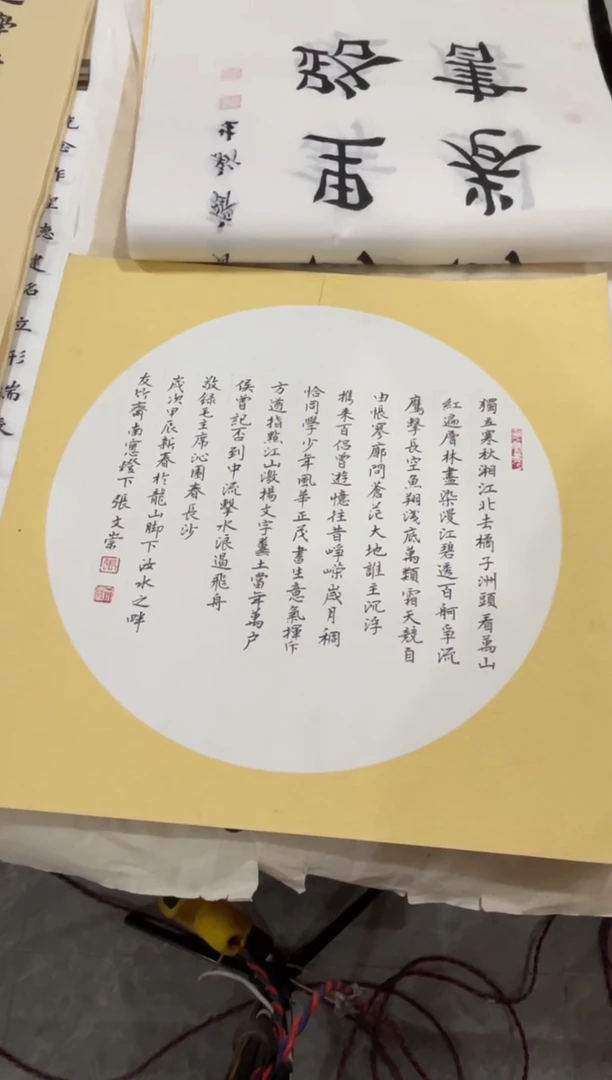 獨立寒秋湘江北去橘子洲頭看萬山
紅遍層林盡染漫江碧透百舸爭流
鷹擊長空魚翔淺底萬類霜天競自
由悵寥廓問蒼茫大地誰主沉浮
携來百侶曾遊憶往昔崢嶸歲月稠
恰同學少年風華正茂書生意氣揮斥
方遒指點江山激揚文字糞土當年萬户
侯曾記否到中流擊水浪遏飛舟
敬錄毛主席沁園春長沙
歲次甲辰新春於龍山脚下汝水之畔
友竹齋南窻燈下張文崇
卷書
里路
克念作聖德建名立形端表